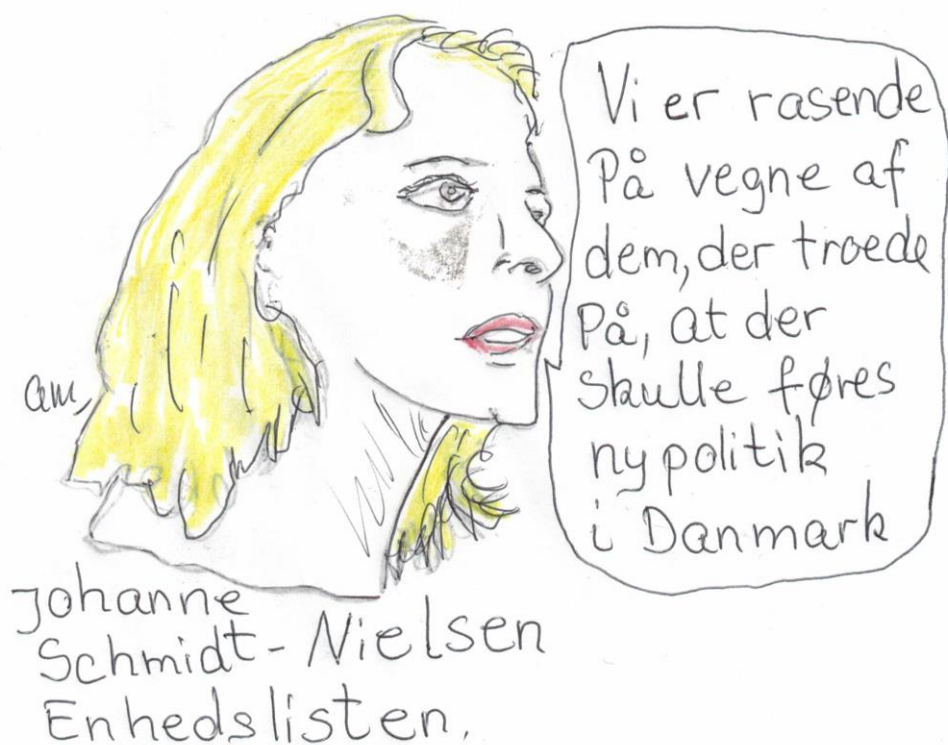 Vi er rasende
På vegne af
dem, der troede
På, at der
skulle føres
ny politik
i Danmark
Johanne
Schmidt-Nielsen
Enhedslisten.